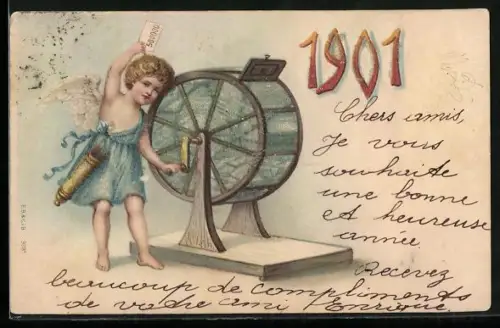 50,000
1901
Chers amis,
Je vous
souhaite
une bonne
et heureuse
année
Recevez
beaucoup de compliments
de votre ami Enrique.